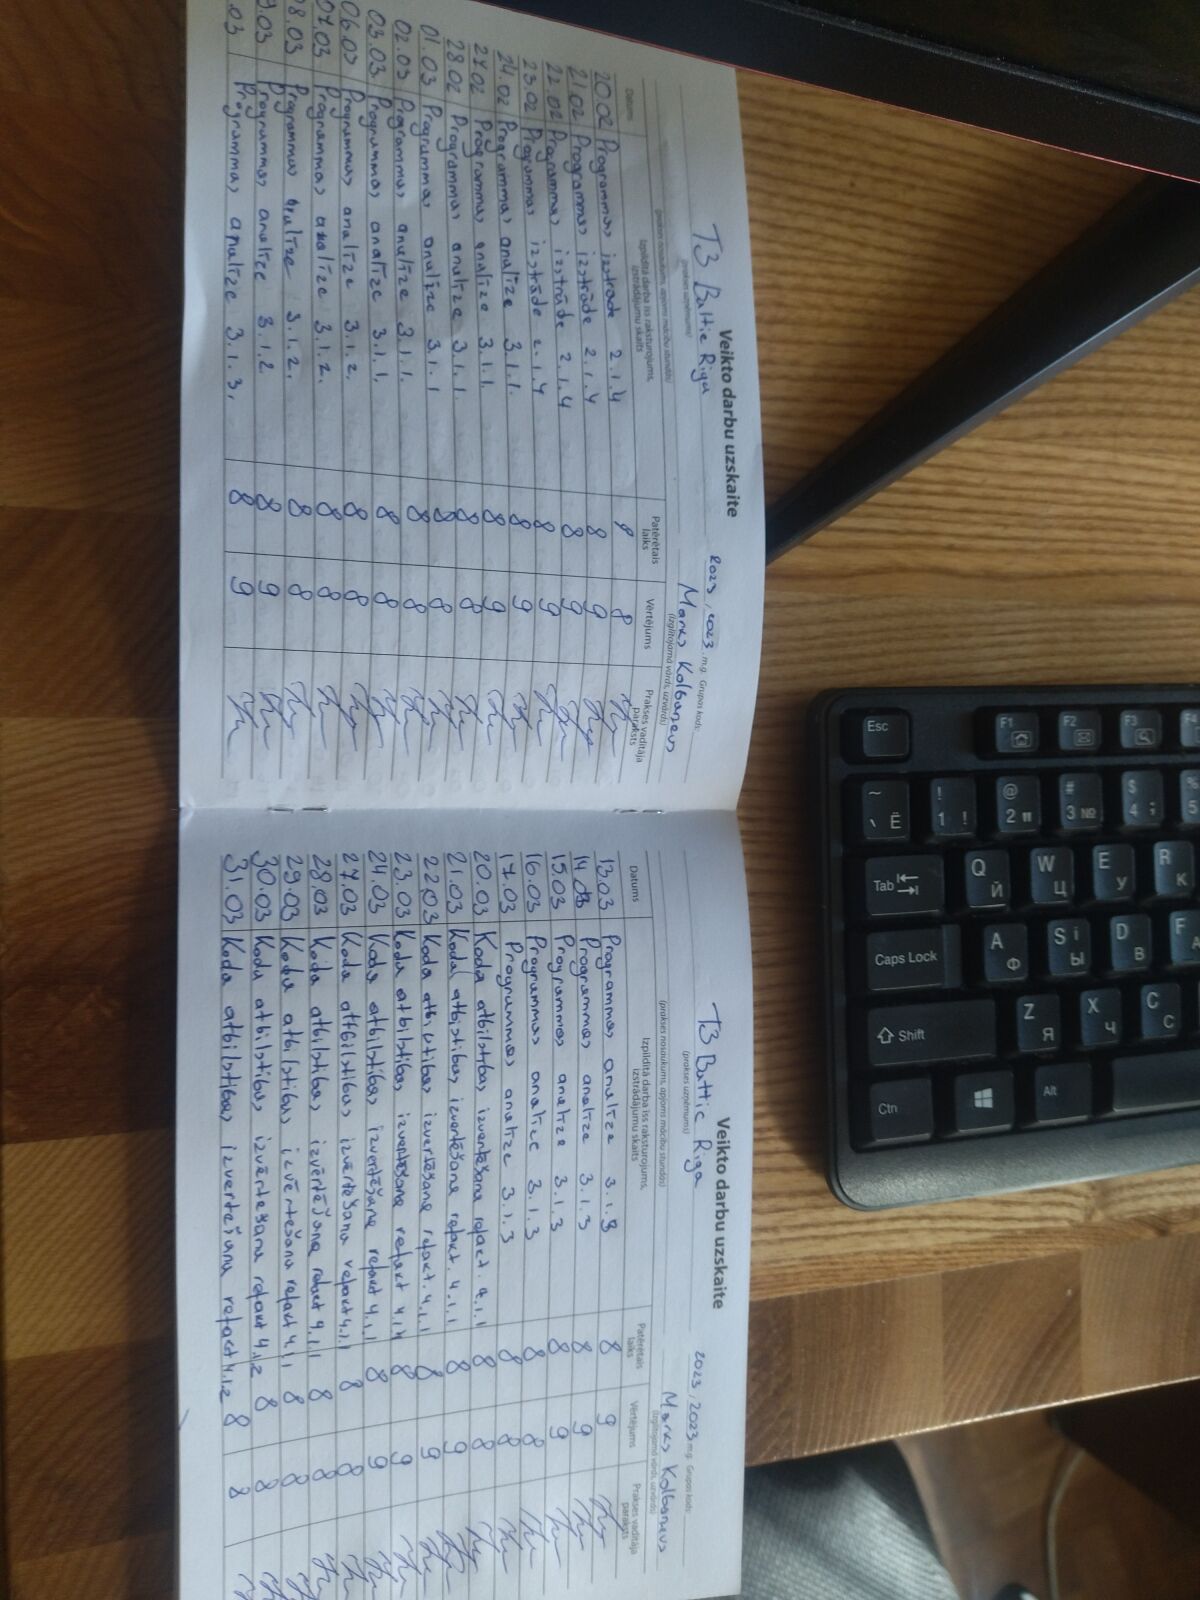 Veikto darbu uzskaite
T3 Baltic Riga
2023, 2023. m.g. Grupas kods:
(prakses uzņēmums)
Marks Kolbanevs
(prakses nosaukums, apjoms mācību stundās)
(izglītojamā vārds, uzvārds)
Datums Izpildītā darba īss raksturojums, izstrādājumu skaits Patērētais laiks Vērtējums Prakses vadītāja paraksts
20.02 Programmas izstrāde 2.1.4 8 8
21.02 Programmas izstrāde 2.1.4 8 9
22.02 Programmas izstrāde 2.1.4 8 9
23.02 Programmas izstrāde 2.1.4 8 9
24.02 Programmas analīze 3.1.1. 8 9
27.02 Programmas analīze 3.1.1. 8 9
28.02 Programmas analīze 3.1.1. 8 8
01.03 Programmas analīze 3.1.1 8 8
02.03 Programmas analīze 3.1.1. 8 8
03.03 Programmas analīze 3.1.1. 8 8
06.03 Programmas analīze 3.1.2. 8 8
07.03 Programmas analīze 3.1.2. 8 8
08.03 Programmas analīze 3.1.2. 8 8
9.03 Programmas analīze 3.1.2 8 9
.03 Programmas analīze 3.1.3. 8 9
Veikto darbu uzskaite
T3 Baltic Riga
2023, 2023 m.g. Grupas kods:
(prakses uzņēmums)
Marks Kolbanevs
(prakses nosaukums, apjoms mācību stundās)
(izglītojamā vārds, uzvārds)
Datums Izpildītā darba īss raksturojums, izstrādājumu skaits Patērētais laiks Vērtējums Prakses vadītāja paraksts
13.03 Programmas analīze 3.1.3 8 9
14.03 Programmas analīze 3.1.3 8 9
15.03 Programmas analīze 3.1.3 8 9
16.03 Programmas analīze 3.1.3 8 8
17.03 Programmas analīze 3.1.3 8 8
20.03 Koda atbilstības izvērtēšana refakt. 4.1.1 8 8
21.03 Koda atbilstības izvertēšana refakt. 4.1.1 8 9
22.03 Koda atbilstības izvertēšana refakt. 4.1.1 8 9
23.03 Koda atbilstības izvertēšana refakt 4.1.1 8 9
24.03 Koda atbilstības izvertēšana refakt 4.1.1 8 9
27.03 Koda atbilstības izvērtēšana refakt 4.1.1 8 8
28.03 Koda atbilstības izvērtēšana refakt 4.1.1 8 8
29.03 Koda atbilstības izvērtēšana refakt 4.1.1 8 8
30.03 Koda atbilstības izvērtēšana refakt 4.1.2 8 8
31.03 Koda atbilstības izvertēšana refakt 4.1.2 8 8
Esc F1 F2 F3
~ Ё 1 ! @ 2 " # 3 № $ 4 ; % 5
Tab Q Й W Ц E У R К
Caps Lock A Ф S і Ы D В F А
Shift Z Я X Ч C С
Ctrl Alt